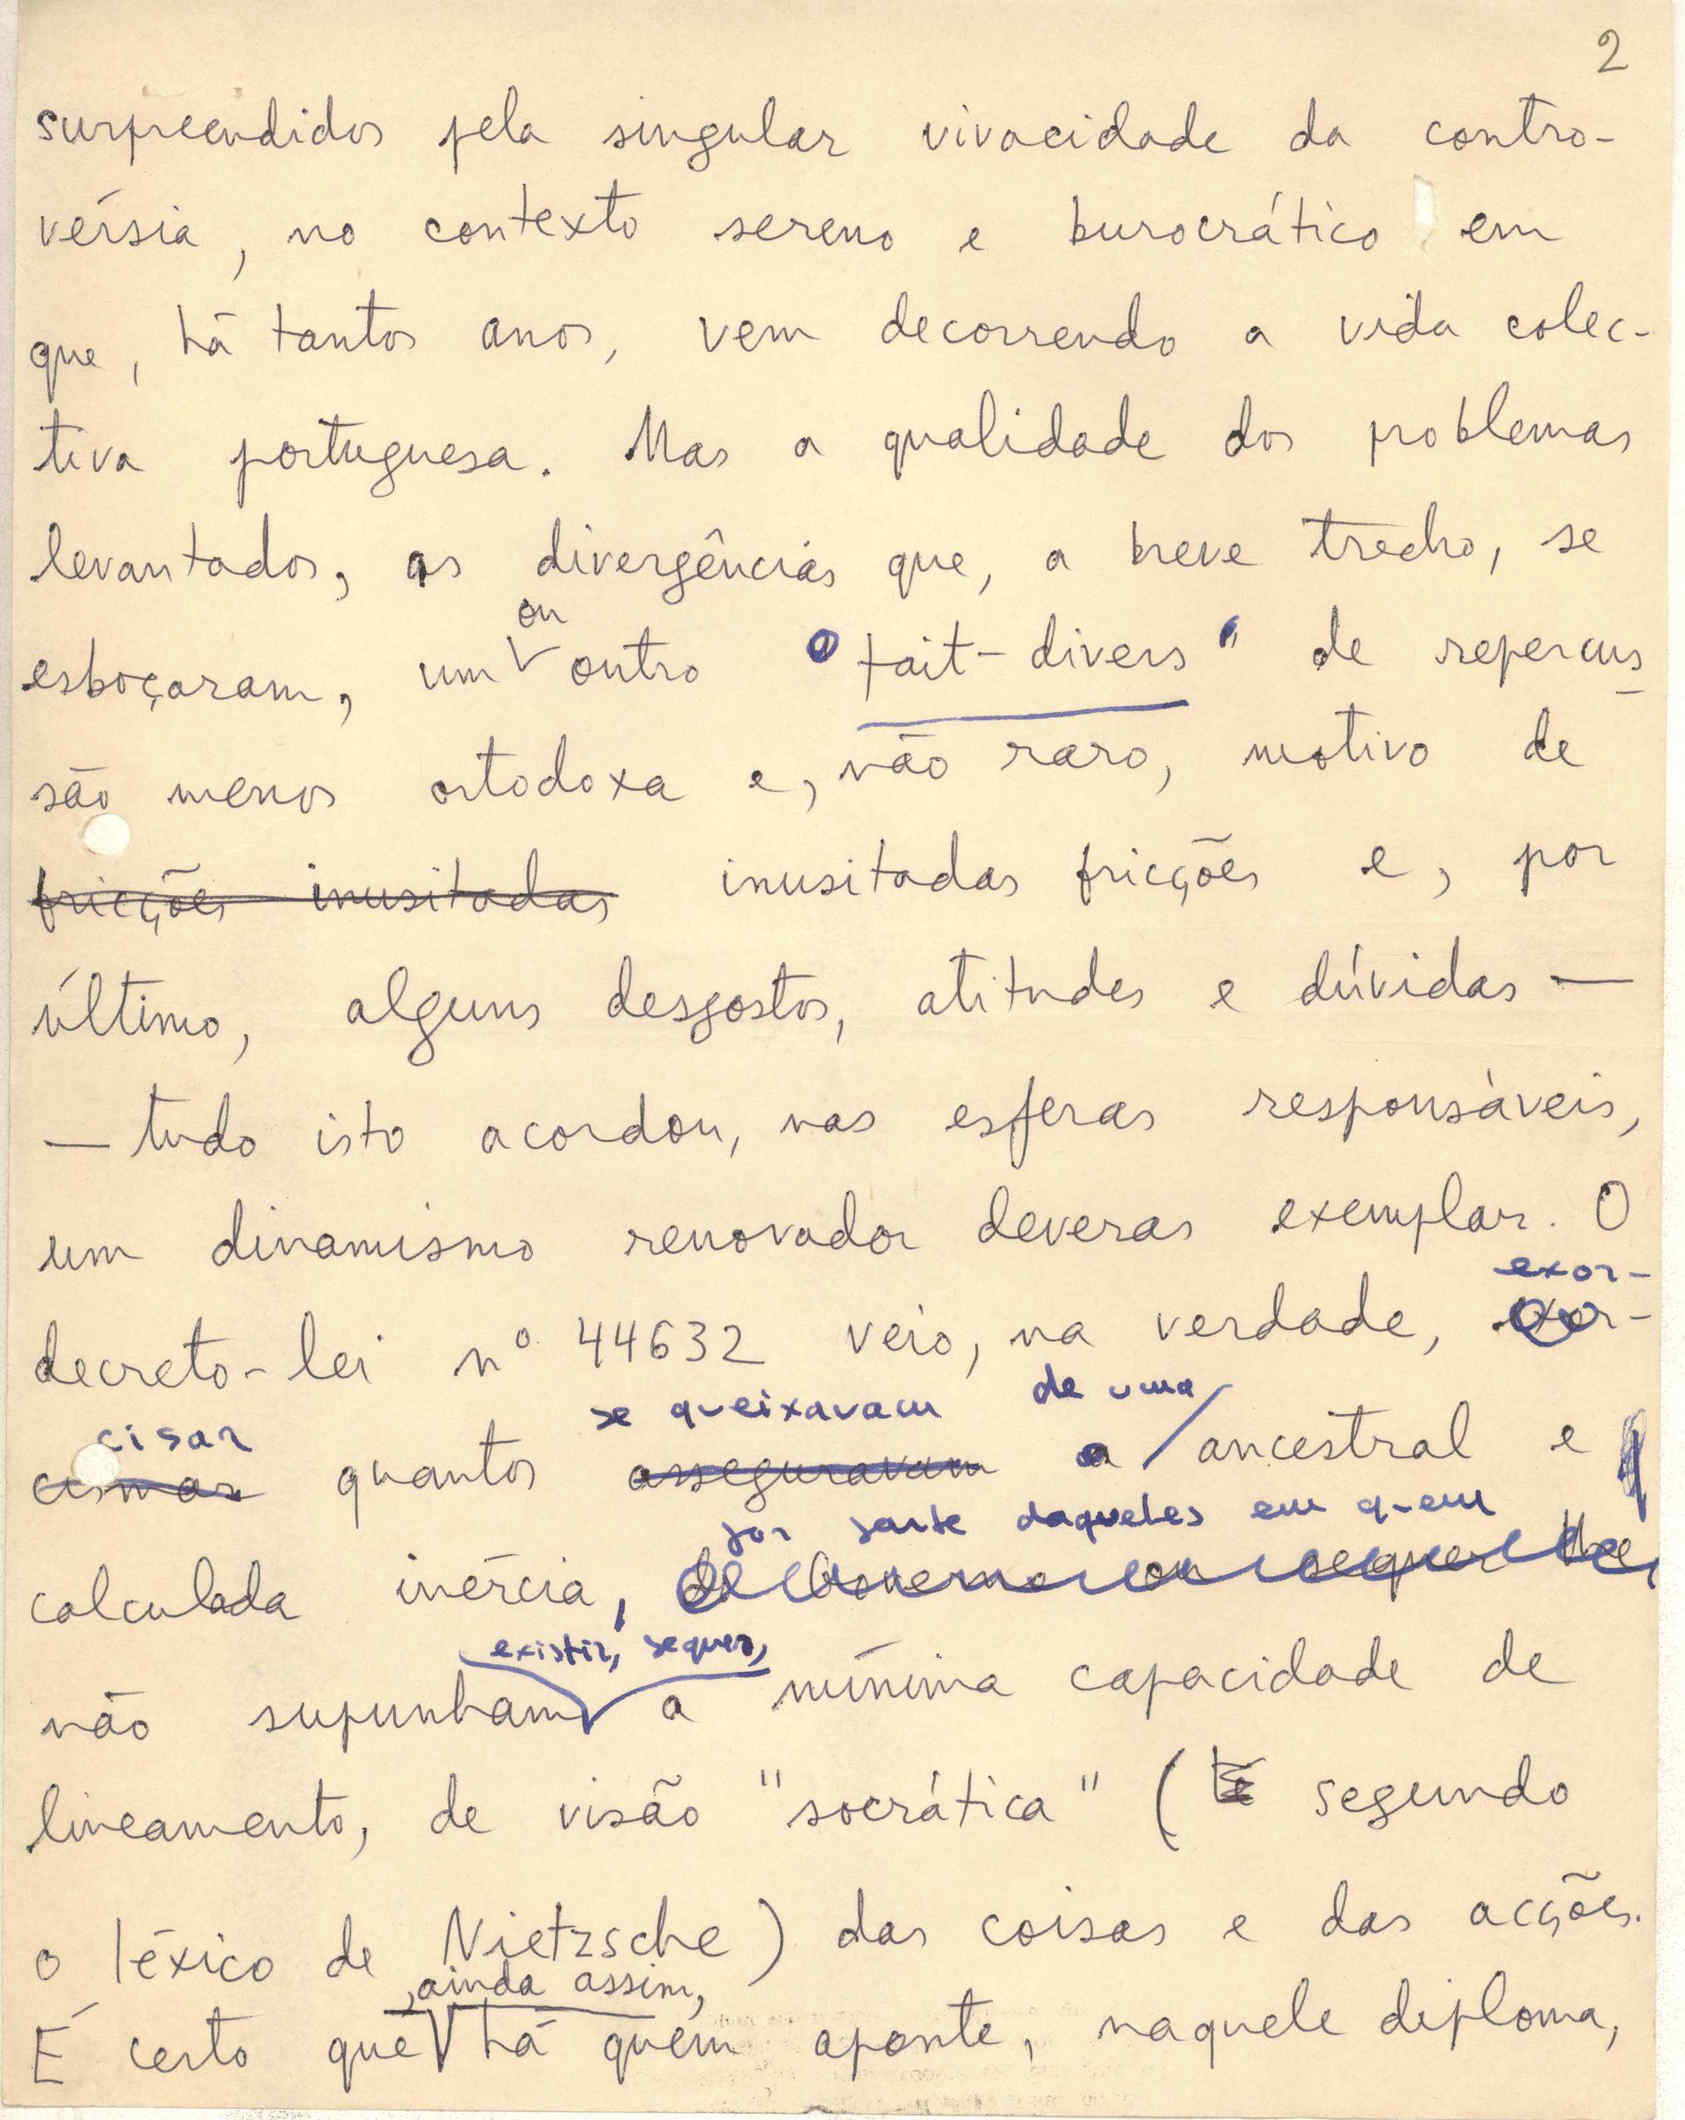 2
surpreendidos pela singular vivacidade da contro-
vérsia, no contexto sereno e burocrático em
que, há tantos anos, vem decorrendo a vida colec-
tiva portuguesa. Mas a qualidade dos problemas
levantados, as divergências que, a breve trecho, se
ou
esboçaram, um outro "fait-divers" de repercus-
são menos ortodoxa e, não raro, motivo de
fricções inusitadas inusitadas fricções e, por
último, alguns desgostos, atitudes e dúvidas —
— tudo isto acordou, nas esferas responsáveis,
um dinamismo renovador deveras exemplar. O
exor-
decreto-lei nº 44632 veio, na verdade, exor-
cisar se queixavam de uma
quantos asseguravam a ancestral e
por parte daqueles em quem
calculada inércia, do Governo ou sequer lhe
existir, sequer,
não supunham a mínima capacidade de
lineamento, de visão "socrática" ( segundo
o léxico de Nietzsche) das coisas e das acções.
, ainda assim,
É certo que há quem aponte, naquele diploma,